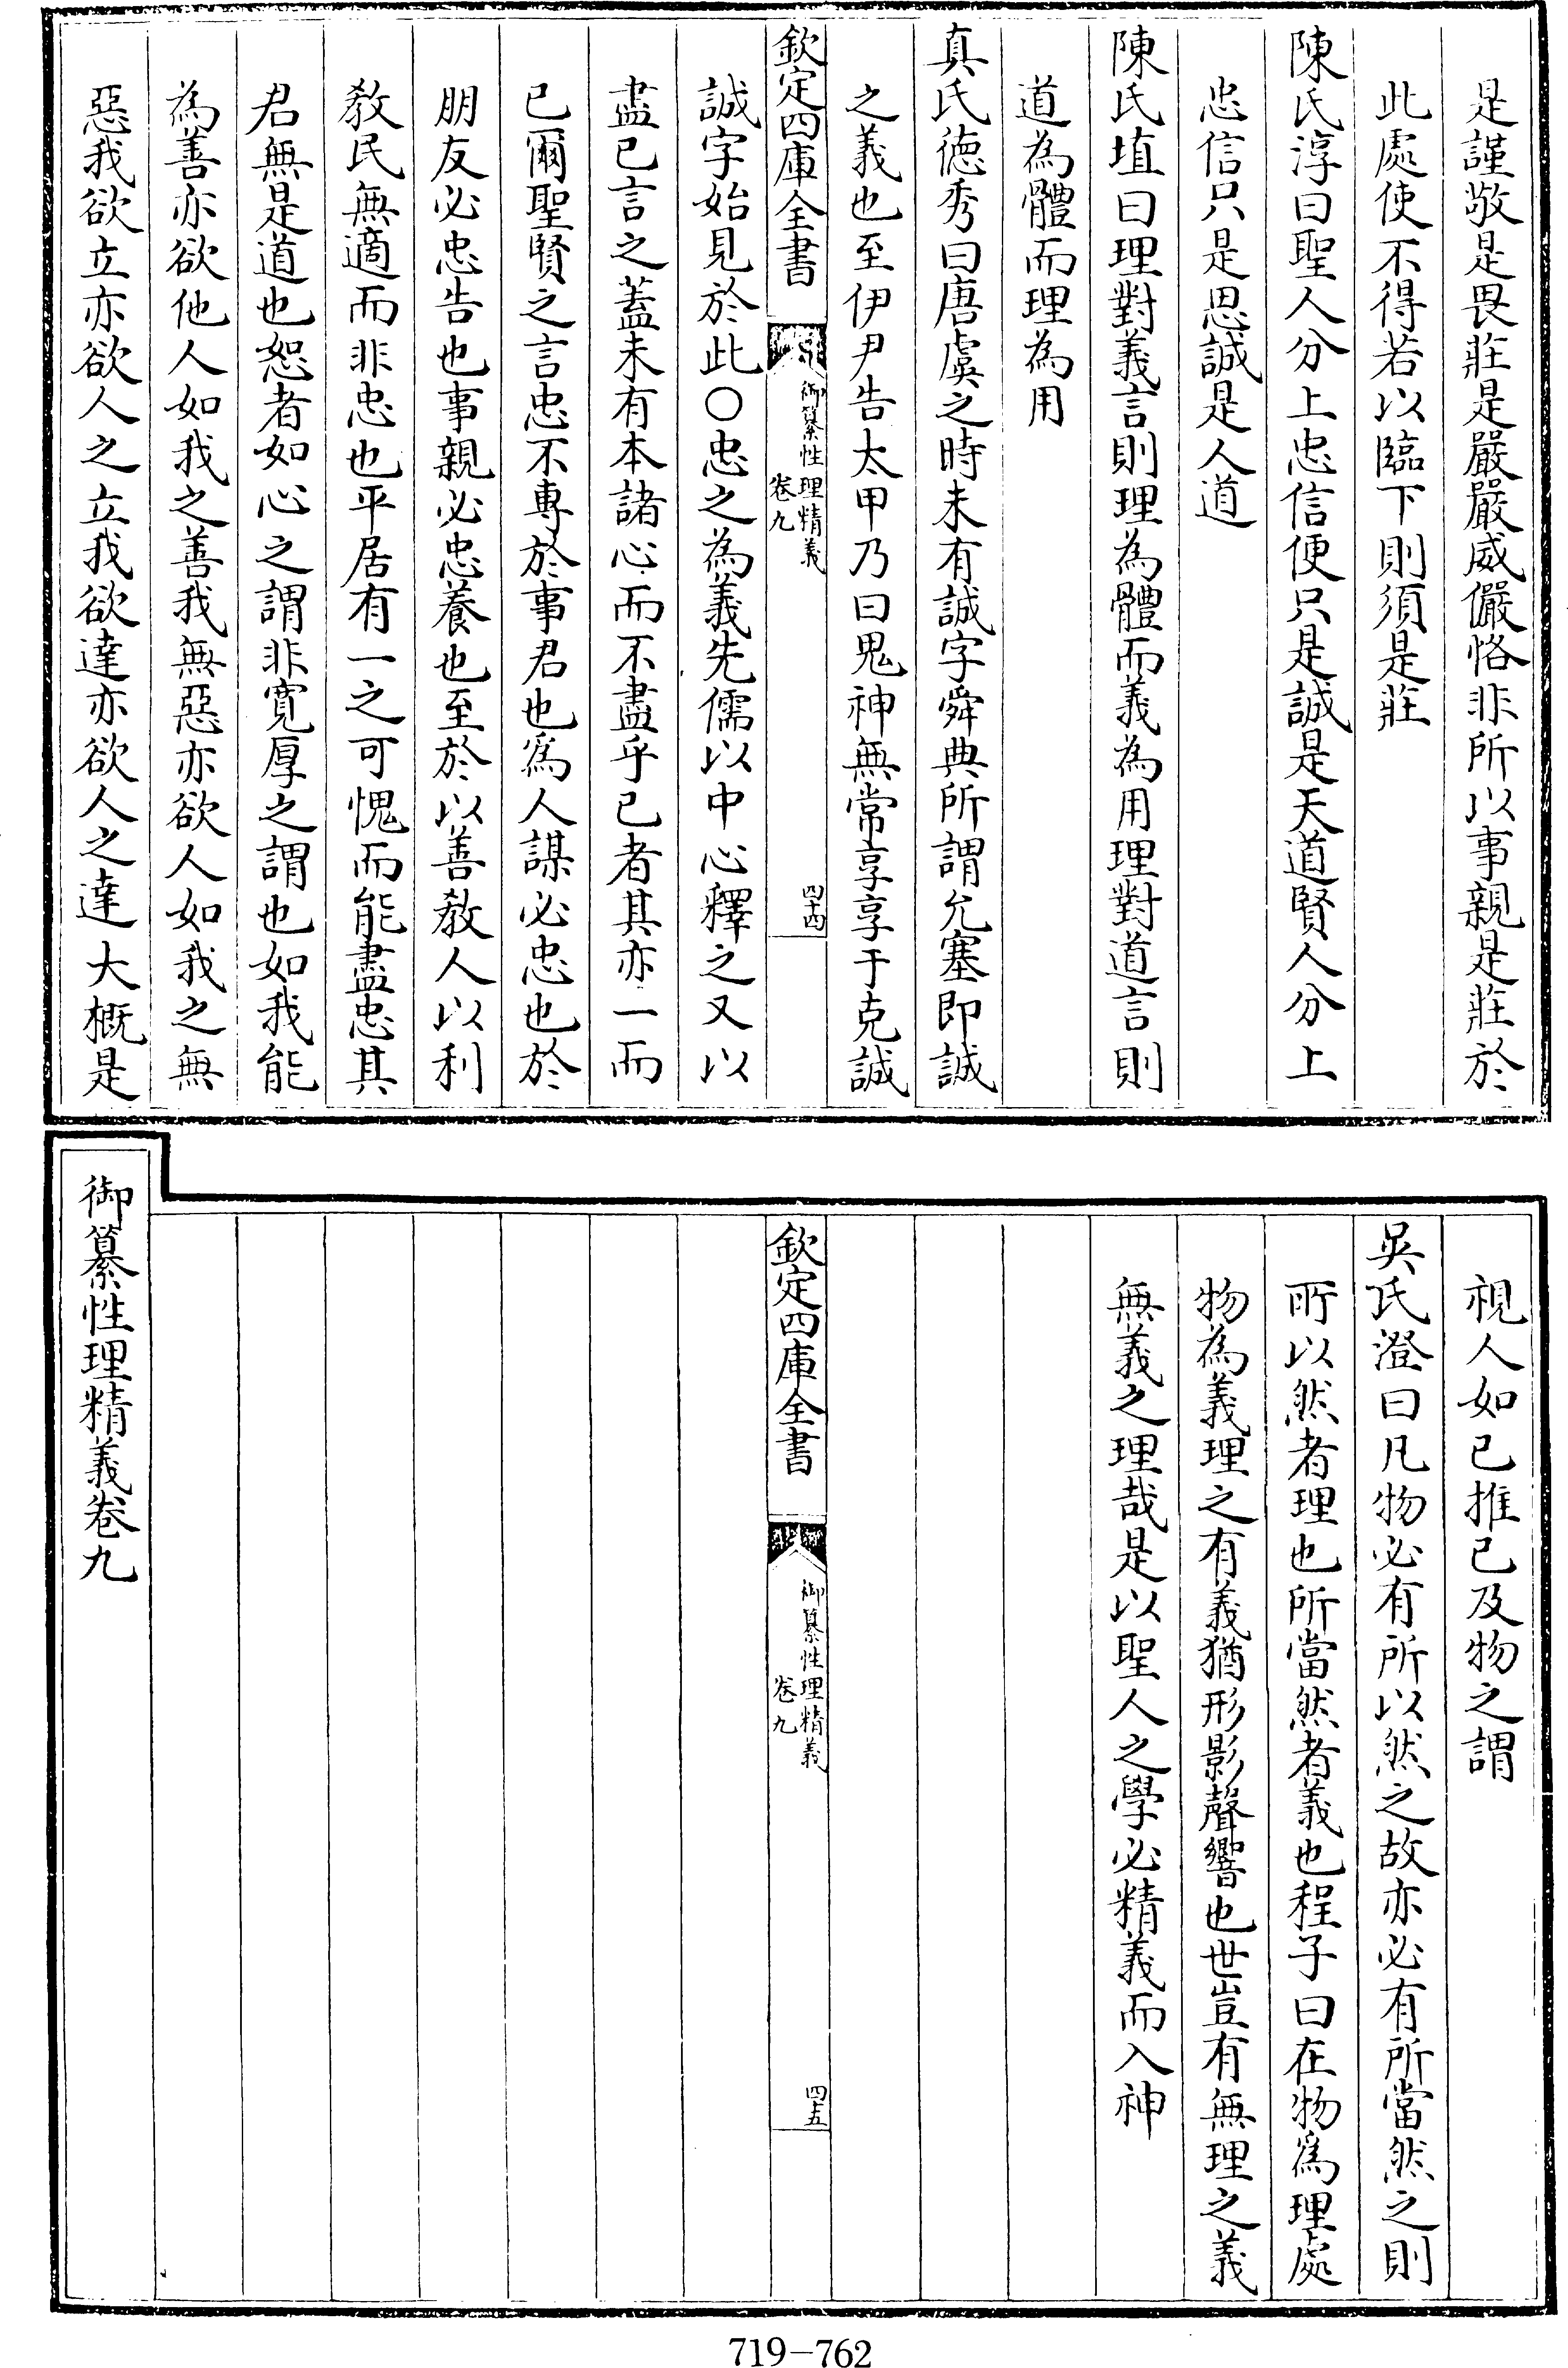 是謹敬是畏莊是嚴嚴威儼恪非所以事親是莊於
此處使不得若以臨下則須是莊
陳氏淳曰聖人分上忠信便只是誠是天道賢人分上
忠信只是思誠是人道
陳氏埴曰理對義言則理為體而義為用理對道言則
道為體而理為用
真氏德秀曰唐虞之時未有誠字舜典所謂允塞即誠
之義也至伊尹告太甲乃曰鬼神無常享享于克誠
欽定四庫全書
御纂性理精義
卷九
四十四
誠字始見於此〇忠之為義先儒以中心釋之又以
盡已言之蓋未有本諸心而不盡乎已者其亦一而
已爾聖賢之言忠不專於事君也爲人謀必忠也於
朋友必忠告也事親必忠養也至於以善教人以利
教民無適而非忠也平居有一之可愧而能盡忠其
君無是道也恕者如心之謂非寛厚之謂也如我能
為善亦欲他人如我之善我無惡亦欲人如我之無
惡我欲立亦欲人之立我欲達亦欲人之達大概是
視人如已推已及物之謂
吳氏澄曰凡物必有所以然之故亦必有所當然之則
所以然者理也所當然者義也程子曰在物爲理處
物為義理之有義猶形影聲響也世豈有無理之義
無義之理哉是以聖人之學必精義而入神
欽定四庫全書
御纂性理精義
卷九
四五
御纂性理精義卷九
719-762